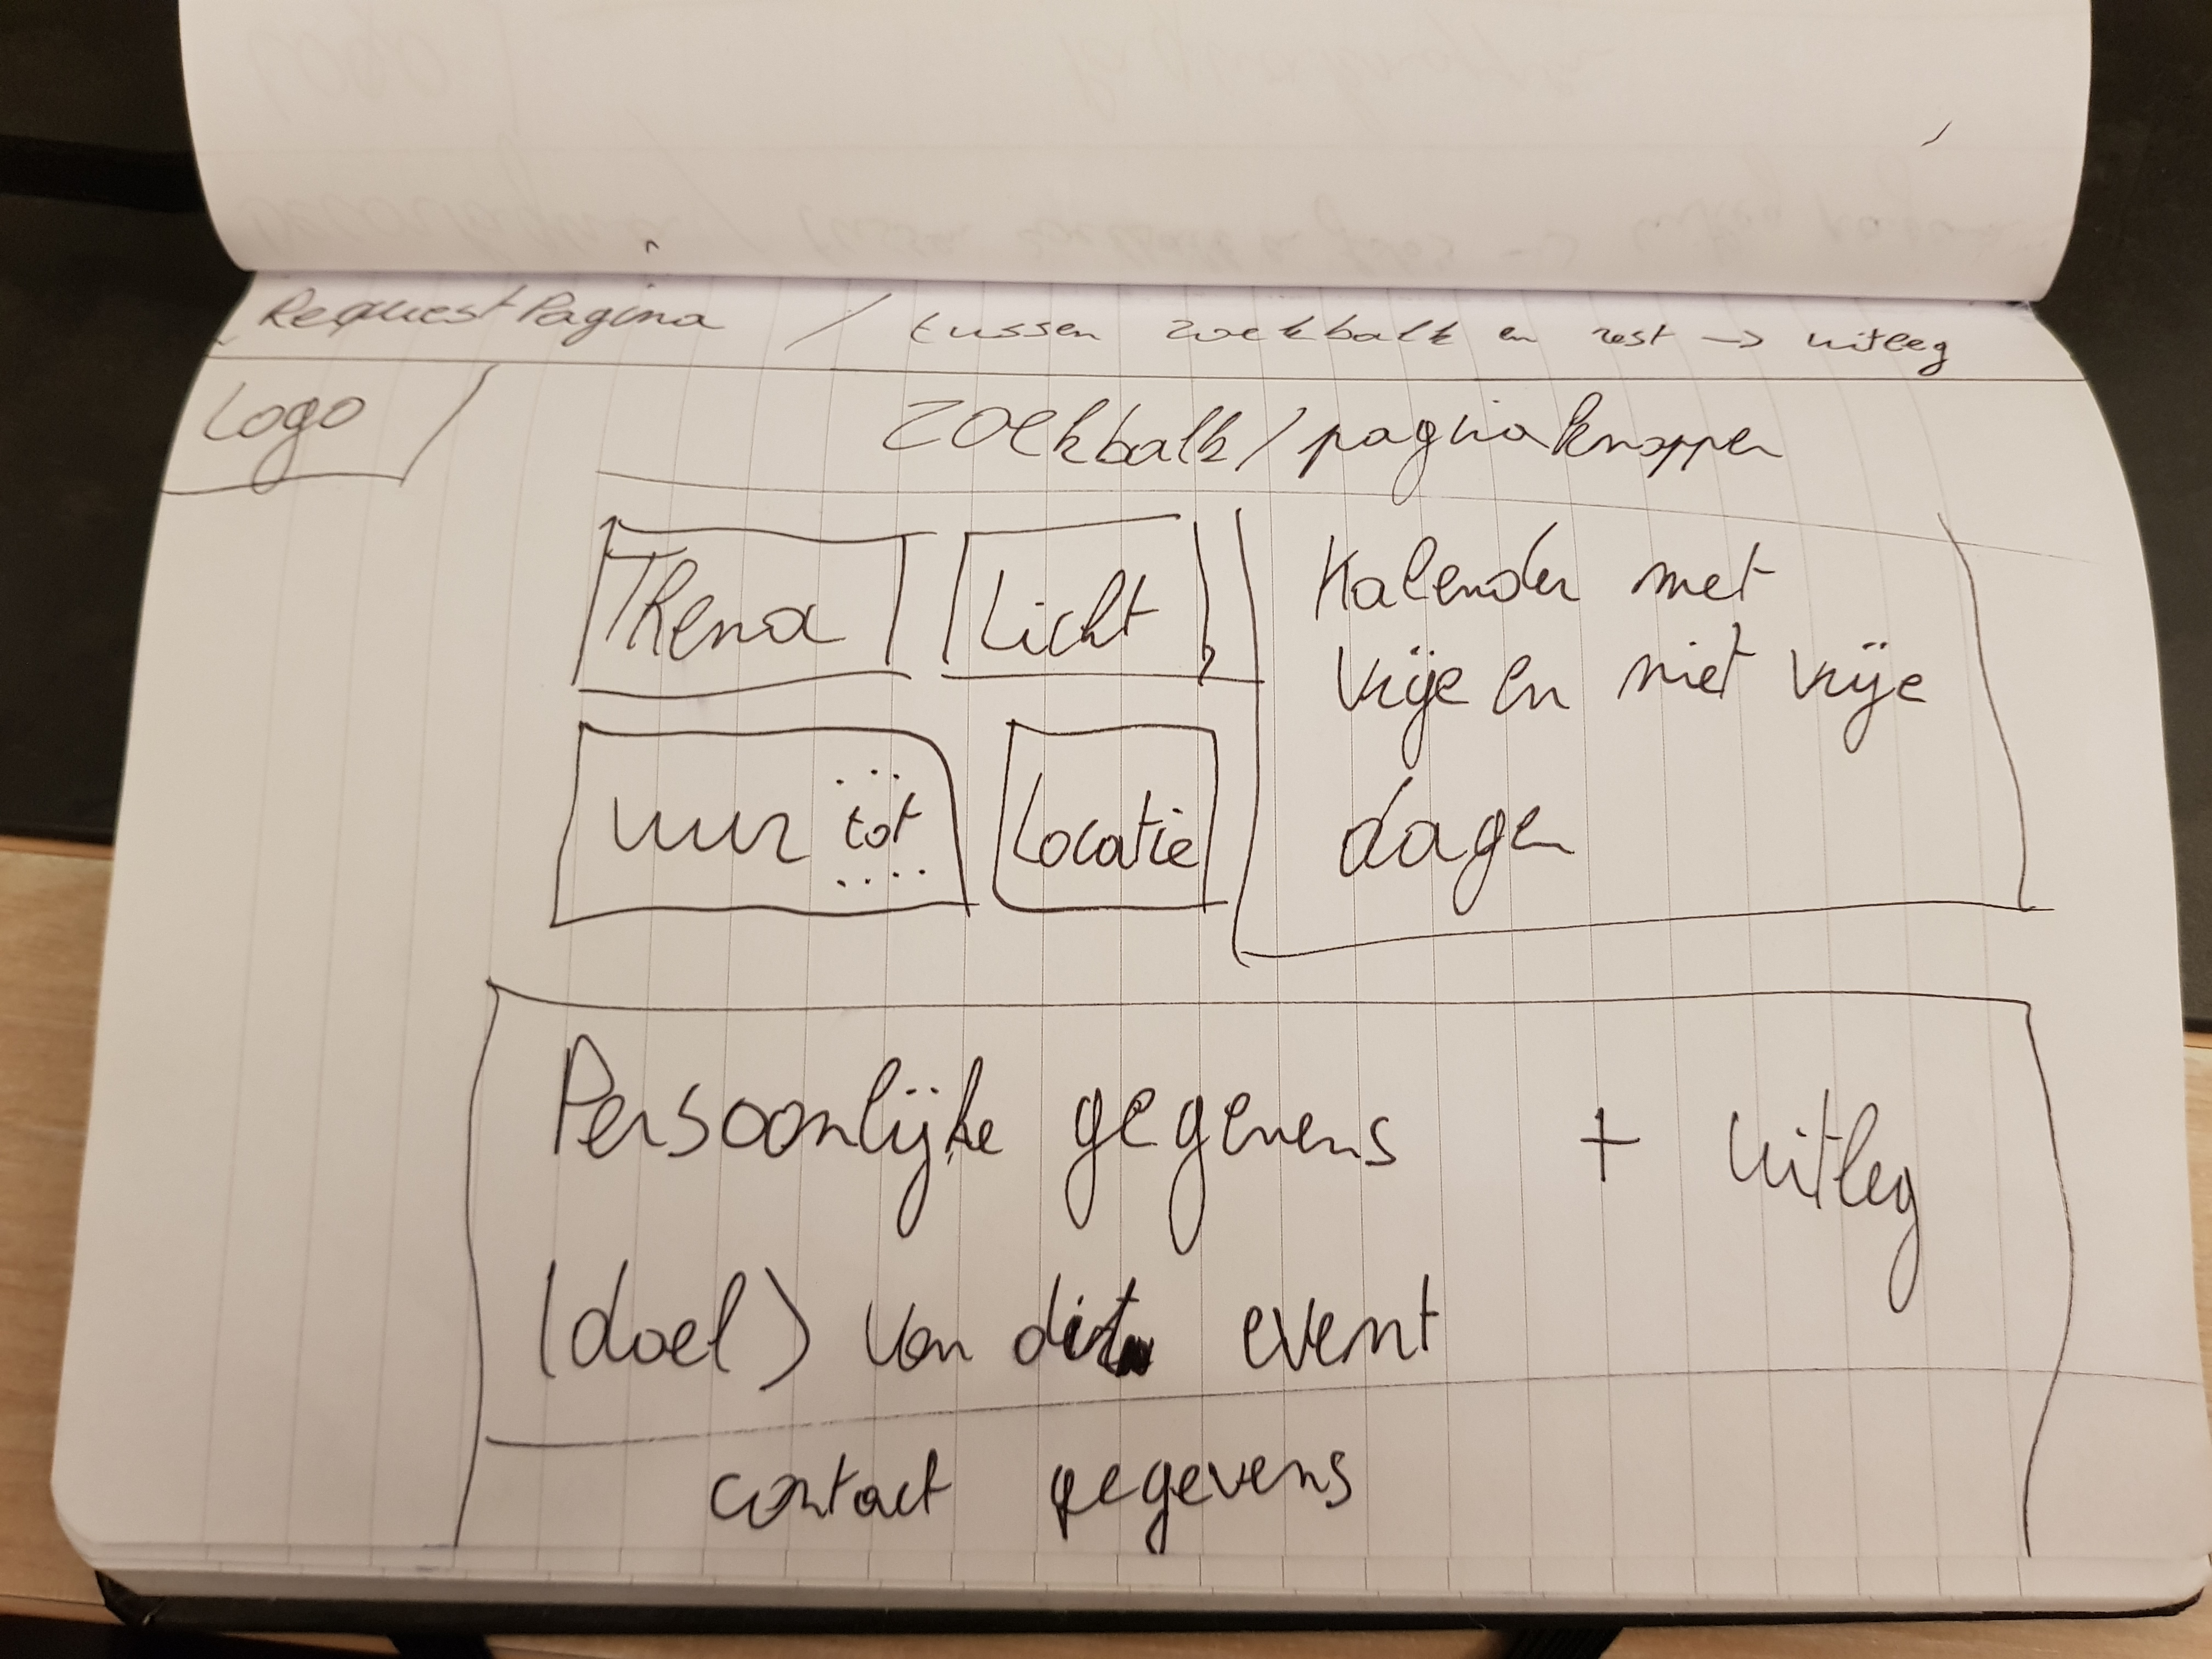 Requestpagina / tussen zoekbalk en rest → uitleg
Logo
Zoekbalk / paginaknoppen
Thema
Licht
Kalender met
vrije en niet vrije
dagen
uur tot
Locatie
Persoonlijke gegevens + uitleg
(doel) van dit event
contact gegevens